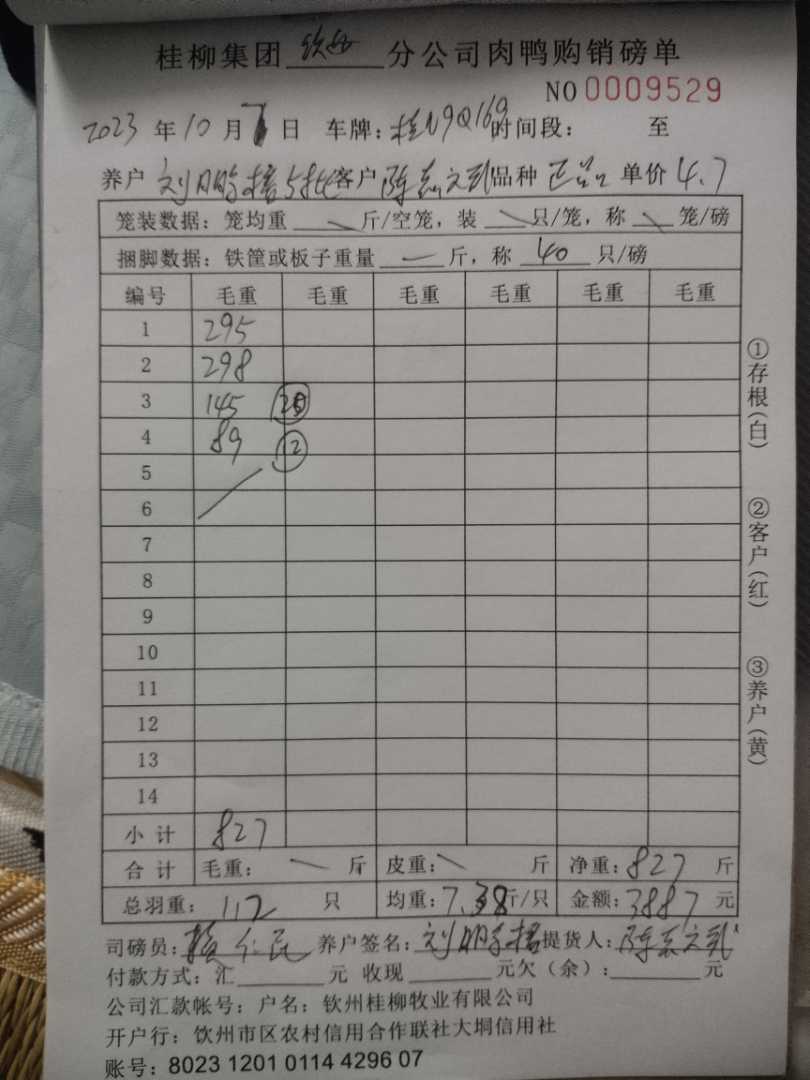 桂柳集团 钦州 分公司肉鸭购销磅单
NO 0009529
2023 年 10 月 日 车牌: 桂N9Q169 时间段: 至
养户 刘明 客户 陈 品种 正品 单价 4.7
笼装数据: 笼均重 斤/空笼, 装 只/笼, 称 笼/磅
捆脚数据: 铁筐或板子重量 — 斤, 称 40 只/磅
编号 毛重 毛重 毛重 毛重 毛重 毛重
1 295
2 298
3 145 20
4 89 12
5
6
7
8
9
10
11
12
13
14
小计 827
合计 毛重: 斤 皮重: 斤 净重: 827 斤
总羽重: 112 只 均重: 7.38 斤/只 金额: 3887 元
司磅员: 养户签名: 刘明 提货人: 陈
付款方式: 汇 元 收现 元欠(余): 元
公司汇款帐号: 户名: 钦州桂柳牧业有限公司
开户行: 钦州市区农村信用合作联社大垌信用社
账号: 8023 1201 0114 4296 07
①存根(白)
②客户(红)
③养户(黄)